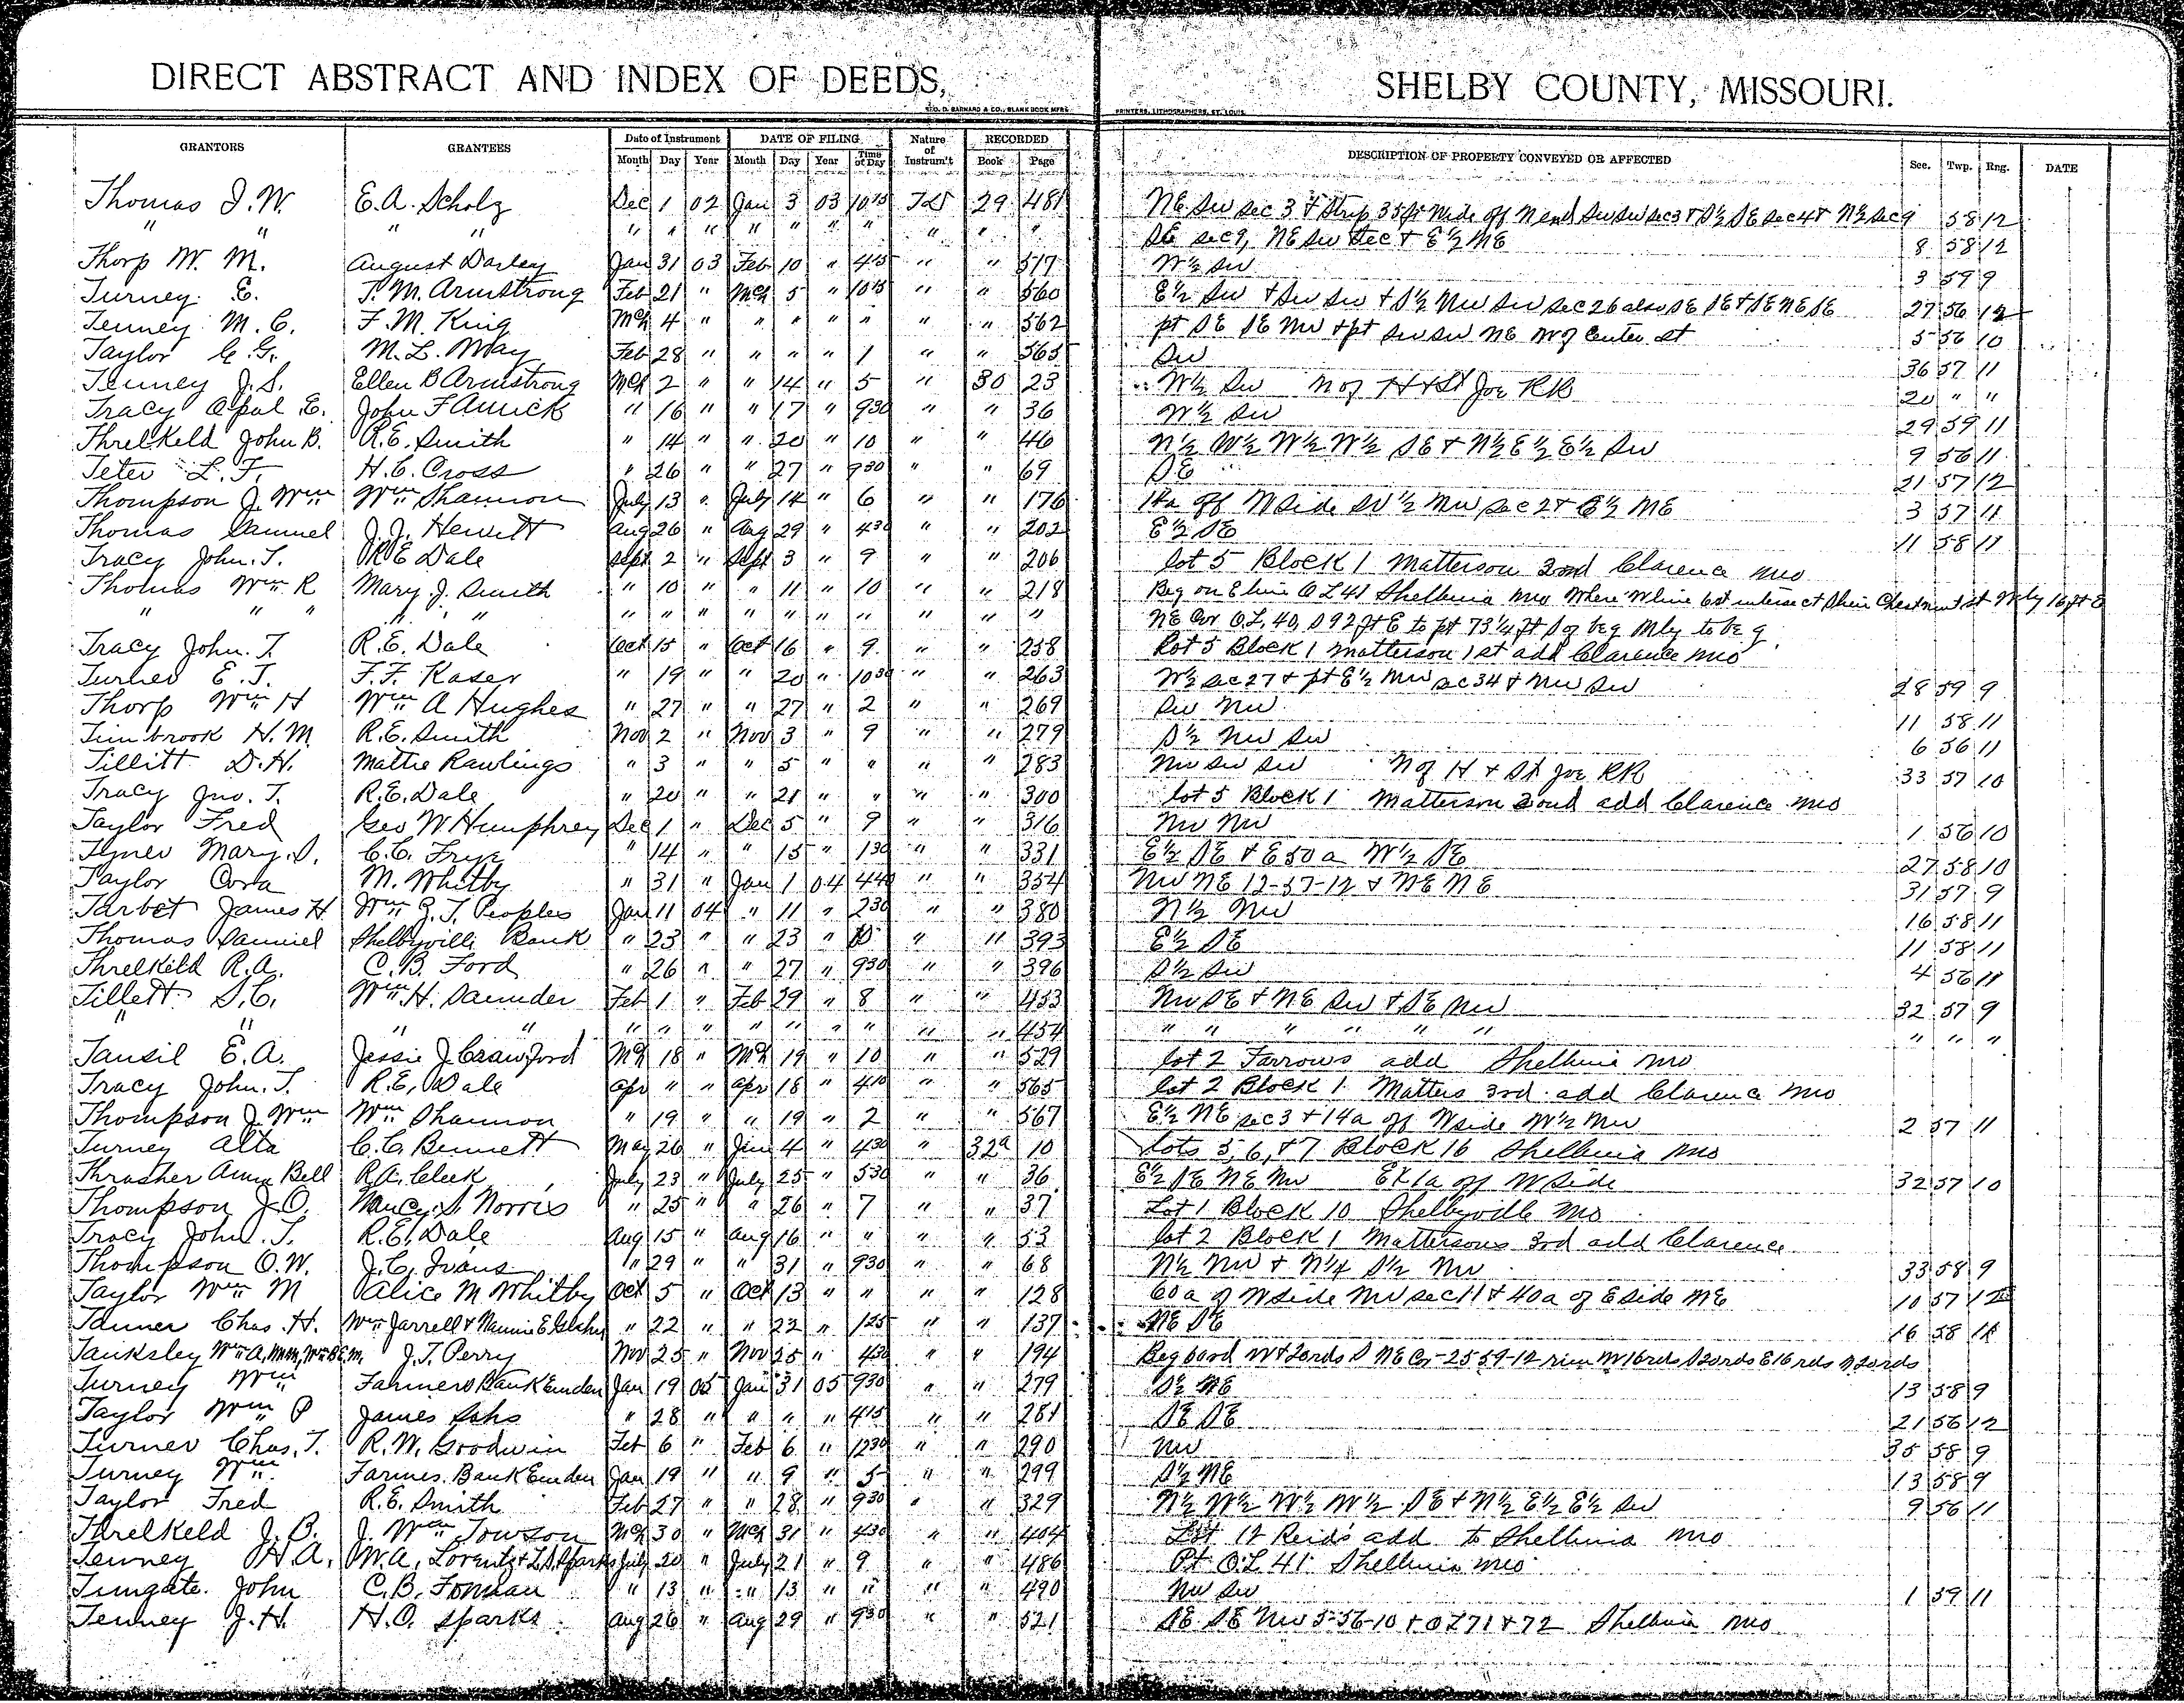 DIRECT ABSTRACT AND INDEX OF DEEDS, SHELBY COUNTY, MISSOURI.
GEO. D. BARNARD & CO., BLANK BOOK MFRS PRINTERS, LITHOGRAPHERS, ST. LOUIS.
GRANTORS GRANTEES Date of Instrument DATE OF FILING Nature of Instrum't RECORDED DESCRIPTION OF PROPERTY CONVEYED OR AFFECTED Sec. Twp. Rng. DATE
Month Day Year Month Day Year Time of Day Book Page
Thomas J. W. E. A. Scholz Dec 1 02 Jan 3 03 10 15 29 481 NE SW sec 3 & Strip 35 ft Wide off N end SW SW sec 3 & S½ SE sec 4 & N½ sec 9 58 12
" " " " " " " " " " " " " " SE sec 9, NE SW Sec & E½ NE 8 58 12
Thorp W. M. August Darley Jan 31 03 Feb 10 " 4 45 " " 517 W½ SW 3 59 9
Turney E. T. M. Armstrong Feb 21 " Mch 5 " 10 45 " " 560 E½ SW & SW SW & S½ NW SW sec 26 also SE SE & SE NE SE 27 56 12
Tenney M. C. F. M. King Mch 4 " " " " " " " 562 pt SE SE NW & pt SW SW NE W of Center st 5 56 10
Taylor G. G. M. L. May Feb 28 " " " " 1 " " 565 SW 36 57 11
Tenney J. S. Ellen B Armstrong Mch 2 " " 14 " 5 " 30 23 W½ SW N of H & St Joe RR 20 " "
Tracy Opal E. John F Amick " 16 " " 17 " 9 30 " " 36 W½ SW 29 59 11
Threlkeld John B. R. E. Smith " 14 " " 20 " 10 " " 46 N½ W½ W½ W½ SE & N½ E½ E½ SW 9 56 11
Teter L. F. H. C. Cross " 26 " " 27 " 9 30 " " 69 SE 21 57 12
Thompson J. Wm Wm Shannon July 13 " July 14 " 6 " " 176 14a off W side W½ NW sec 2 & E½ NE 3 57 11
Thomas Samuel J. J. Hewitt Aug 26 " Aug 29 " 4 30 " " 202 E½ SE 11 58 11
Tracy John. T. R E Dale Sept 2 " Sept 3 " 9 " " 206 lot 5 Block 1 Matterson 2ond Clarence Mo
Thomas Wm R Mary J. Smith " 10 " " 11 " 10 " " 218 Beg on E line O L 41 Shelbina Mo Where W line 6st intersect Chestnut st W'ly 16 ft E
" " " " " " " " " " " " " " " NE Cor O.L. 40, S 92 ft E to pt 73¼ ft S of beg Nly to beg.
Tracy John. T. R. E. Dale Oct 15 " Oct 16 " 9 " " 258 Lot 5 Block 1 Matterson 1st add Clarence Mo
Turner E. T. F. F. Kaser " 19 " " 20 " 10 30 " " 263 W½ sec 27 & pt E½ NW sec 34 & NW SW 28 59 9
Thorp Wm H Wm A Hughes " 27 " " 27 " 2 " " 269 SW NW 11 58 11
Timbrook H. M. R. E. Smith Nov 2 " Nov 3 " 9 " " 279 S½ NW SW 6 56 11
Tillitt D. H. Mattie Rawlings " 3 " " 5 " " " " 283 NW SW SW N of H & St Joe RR 33 57 10
Tracy Jno. T. R. E. Dale " 20 " " 21 " " " " 300 lot 5 Block 1 Matterson 2ond add Clarence Mo
Taylor Fred Geo W Humphrey Dec 1 " Dec 5 " 9 " " 316 NW NW 1 56 10
Tyner Mary. S. C. C. Frye " 14 " " 15 " 1 30 " " 331 E½ SE & E 50 a W½ SE 27 58 10
Taylor Cora M. Whitby " 31 " Jan 1 04 4 40 " " 354 NW NE 12-57-12 & NE NE 31 57 9
Tarbet James H Wm J. T. Peoples Jan 11 04 " 11 " 2 30 " " 380 N½ NW 16 58 11
Thomas Samuel Shelbyville Bank " 23 " " 23 " " " 393 E½ SE 11 58 11
Threlkeld R. A. C. B. Ford " 26 " " 27 " 9 30 " " 396 S½ SW 4 56 11
Tillett S. C. Wm H. Saunder Feb 1 " Feb 29 " 8 " " 453 NW SE & NE SW & SE NW 32 57 9
" " " " " " " " " " " " " 454 " " " " " " " " "
Tansil E. A. Jessie J. Crawford Mch 18 " Mch 19 " 10 " " 529 lot 2 Farrows add Shelbina Mo
Tracy John. T. R. E. Dale Apr " " Apr 18 " 4 10 " " 565 lot 2 Block 1 Matters 3rd add Clarence Mo
Thompson J Wm Wm Shannon " 19 " " 19 " 2 " " 567 E½ NE sec 3 & 14a off W side W½ NW 2 57 11
Turney Alta C. C. Bennett May 26 " Jun 4 " 4 30 " 32a 10 Lots 5, 6, & 7 Block 16 Shelbina Mo
Thrasher Anna Bell R. A. Cleek July 23 " July 25 " 5 30 " " 36 E½ SE NE NW Ex 1a off W side 32 57 10
Thompson J. O. Nancy S Norris " 25 " " 26 " 7 " " 37 Lot 1 Block 10 Shelbyville Mo
Tracy John. T. R. E. Dale Aug 15 " Aug 16 " " " " 53 lot 2 Block 1 Mattersons 3rd add Clarence
Thompson O. W. J. C. Ivans " 29 " " 31 " 9 30 " " 68 N½ NW & N¼ S½ NW 33 58 9
Taylor Wm M Alice M Whitby Oct 5 " Oct 13 " " " " 128 60 a of W side NW sec 11 & 40 a of E side NE 10 57 12
Tanner Chas. H. Wm Jarrell & Nannie E " 22 " " 22 " 1 25 " " 137 NE SE 16 58 11
Tanksley Wm A, J. T. Perry Nov 25 " Nov 25 " 4 30 " " 194 Beg 60rd W & 20rds S NE Cor 25 59-12 run W 16rds S 20rds E 16 rds N 20rds
Turney Wm Farmers Bank Emden Jan 19 05 Jan 31 05 9 30 " " 279 S½ NE 13 58 9
Taylor Wm P James Sohs " 28 " " " " 4 15 " " 281 SE SE 21 56 12
Turner Chas. T. R. W. Goodwin Feb 6 " Feb 6 " 12 30 " " 290 NW 35 58 9
Turney Wm Farmes. Bank Emden Jan 19 " " 9 " 5 " " 299 S½ NE 13 58 9
Taylor Fred R. E. Smith Feb 27 " " 28 " 9 30 " " 329 N½ W½ W½ W½ SE & N½ E½ E½ SW 9 56 11
Threlkeld J. B. J. Wm Towson Mch 30 " Mch 31 " 4 30 " " 404 Lot 12 Reids add to Shelbina Mo
Tenney H A. M. A. Lorentz & L. S. Sparks July 20 " July 21 " 9 " " 486 Pt O.L 41 Shelbina Mo
Tungate. John C. B. Forman " 13 " " 13 " " " " 490 NW SW 1 59 11
Tenney J. H. H. O. Sparks Aug 26 " Aug 29 " 9 30 " " 521 SE SE NW 5-56-10 & O L 71 & 72 Shelbina Mo